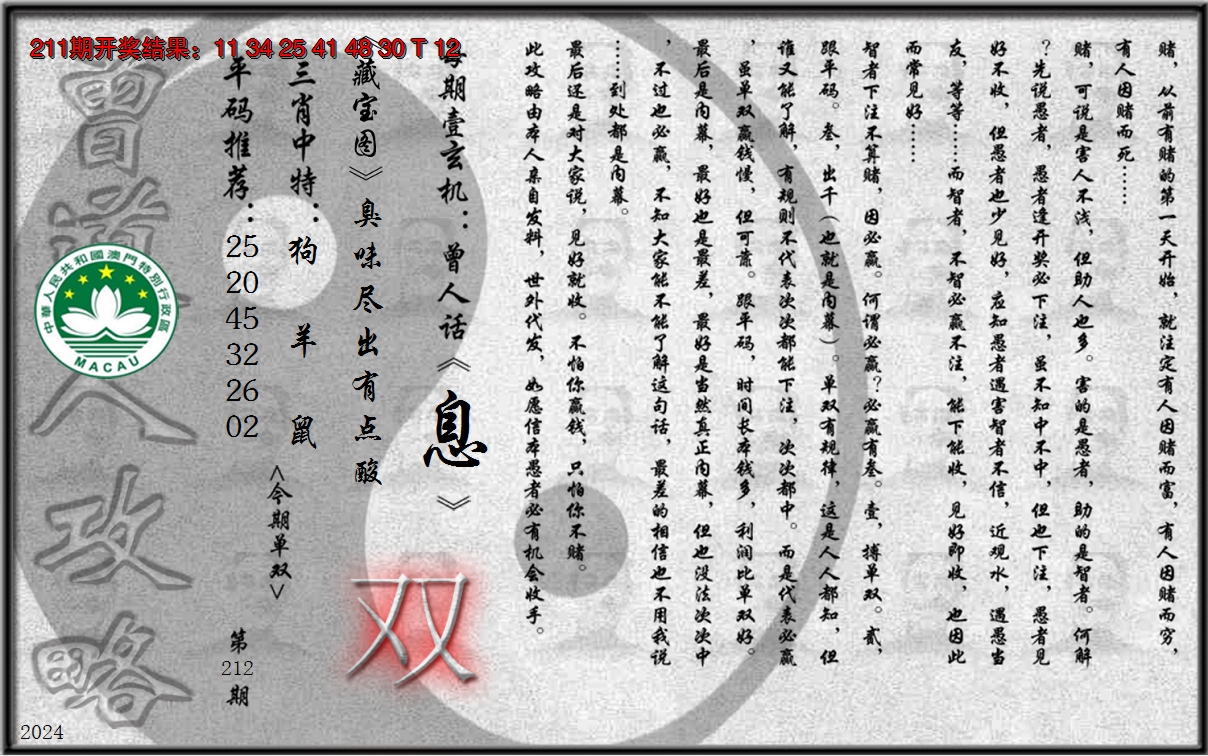 211期开奖结果：11 34 25 41 48 30 T 12
赌，从前有赌的第一天开始，就注定有人因赌而富，有人因赌而穷，
有人因赌而死……
赌，可说是害人不浅，但助人也多。害的是愚者，助的是智者。何解
？先说愚者，愚者逢开奖必下注，虽不知中不中，但也下注，愚者见
好不收，但愚者也少见好，应知愚者遇害智者不信，近观水，遇愚当
友，等等……而智者，不智必赢不注，能下能收，见好即收，也因此
而常见好……
智者下注不算赌，因必赢。何谓必赢？必赢有叁。壹，搏单双。贰，
跟平码。叁，出千（也就是内幕）。单双有规律，这是人人都知，但
谁又能了解，有规则不代表次次都能下注，次次都中。而是代表必赢
，虽单双赢钱慢，但可靠。跟平码，时间长本钱多，利润比单双好。
最后是内幕，最好也是最差，最好是当然真正内幕，但也没法次次中
，不过也必赢，不知大家能不能了解这句话，最差的相信也不用我说
……到处都是内幕。
最后还是对大家说，见好就收。不怕你赢钱，只怕你不赌。
此攻略由本人亲自发料，世外代发，如愿信本愚者必有机会收手。
每期壹玄机：曾人话《息》
《藏宝图》臭味尽出有点酸
双
三肖中特：狗 羊 鼠
<今期单双>
平码推荐：25 20 45 32 26 02
第212期
曾道人攻略
中華人民共和國澳門特別行政區
MACAU
2024